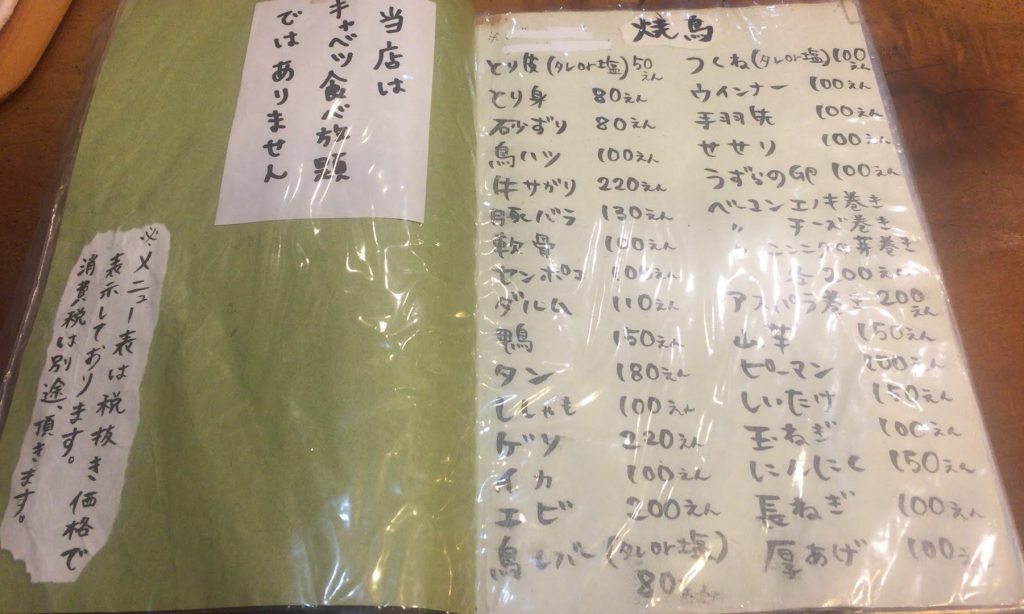 当店は
キャベツ食べ放題
ではありません
※メニュー表は税抜き価格で
表示しております。
消費税は別途、頂きます。
焼鳥
とり皮(タレor塩)50えん
とり身 80えん
砂ずり 80えん
鳥ハツ 100えん
牛サガリ 220えん
豚バラ 130えん
軟骨 100えん
センポコ
ダルム 110えん
鴨 150えん
タン 180えん
ししゃも 100えん
ゲソ 220えん
イカ 100えん
エビ 200えん
鳥レバー(タレor塩)
80えん
つくね(タレor塩)100えん
ウインナー 100えん
手羽先 100えん
せせり 100えん
うずらのGP 100えん
ベーコンエノキ巻き
〃 チーズ巻き
〃 ニンニクの芽巻き
各200えん
アスパラ巻き 200えん
山芋 150えん
ピーマン 100えん
しいたけ 150えん
玉ねぎ 100えん
にんにく 150えん
長ねぎ 100えん
厚あげ 100え